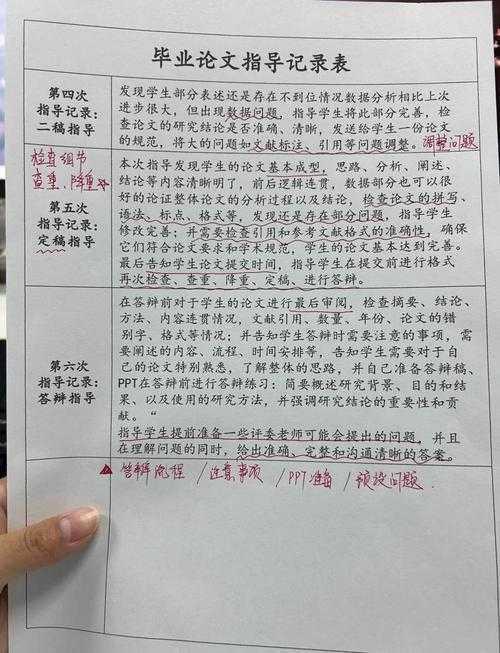 毕业论文指导记录表
第四次
指导记录：
二稿指导
发现学生部分表述还是存在不到位情况数据分析相比上次
进步很大，但出现数据问题，指导学生将此部分完善，检
查论文的研究结论是否准确、清晰，发送给学生一份论文
的规范，将大的问题如文献标注、引用等问题调整。调整问题
检查细节
查重、降重
第五次
指导记录：
定稿指导
本次指导发现学生的论文基本成型，思路、分析、阐述、
结论等内容清晰明了，前后逻辑连贯，数据部分也可以很
好的论证整体论文的分析过程以及结论，检查论文的拼写、
语法、标点、格式等，发现还是存在部分问题，指导学生
修改完善；并需要检查引用和参考文献格式的准确性，确保
它们符合论文要求和学术规范，学生的论文基本达到完善。
最后告知学生论文提交时间，指导学生在提交前进行格式
再次检查、查重、降重、定稿、进行答辩。
第六次
指导记录：
答辩指导
在答辩前对于学生的论文进行最后审阅，检查摘要、结论、
方法、内容连贯情况，文献引用、数量、年份、论文的错
别字、格式等情况；并告知学生答辩时需要注意的事项，需
要阐述的内容、流程、时间安排等，告知学生需要对于自
己的论文特别熟悉，了解整体的思路，并自己准备答辩稿、
PPT在答辩前进行答辩练习：简要概述研究背景、目的和结
果、以及使用的研究方法，并强调研究结论的重要性和贡
献。“
指导学生提前准备一些评委老师可能会提出的问题，并且
在理解问题的同时，给出准确、完整和沟通清晰的答案。
答辩流程 /注意事项 /PPT准备 /预设问题